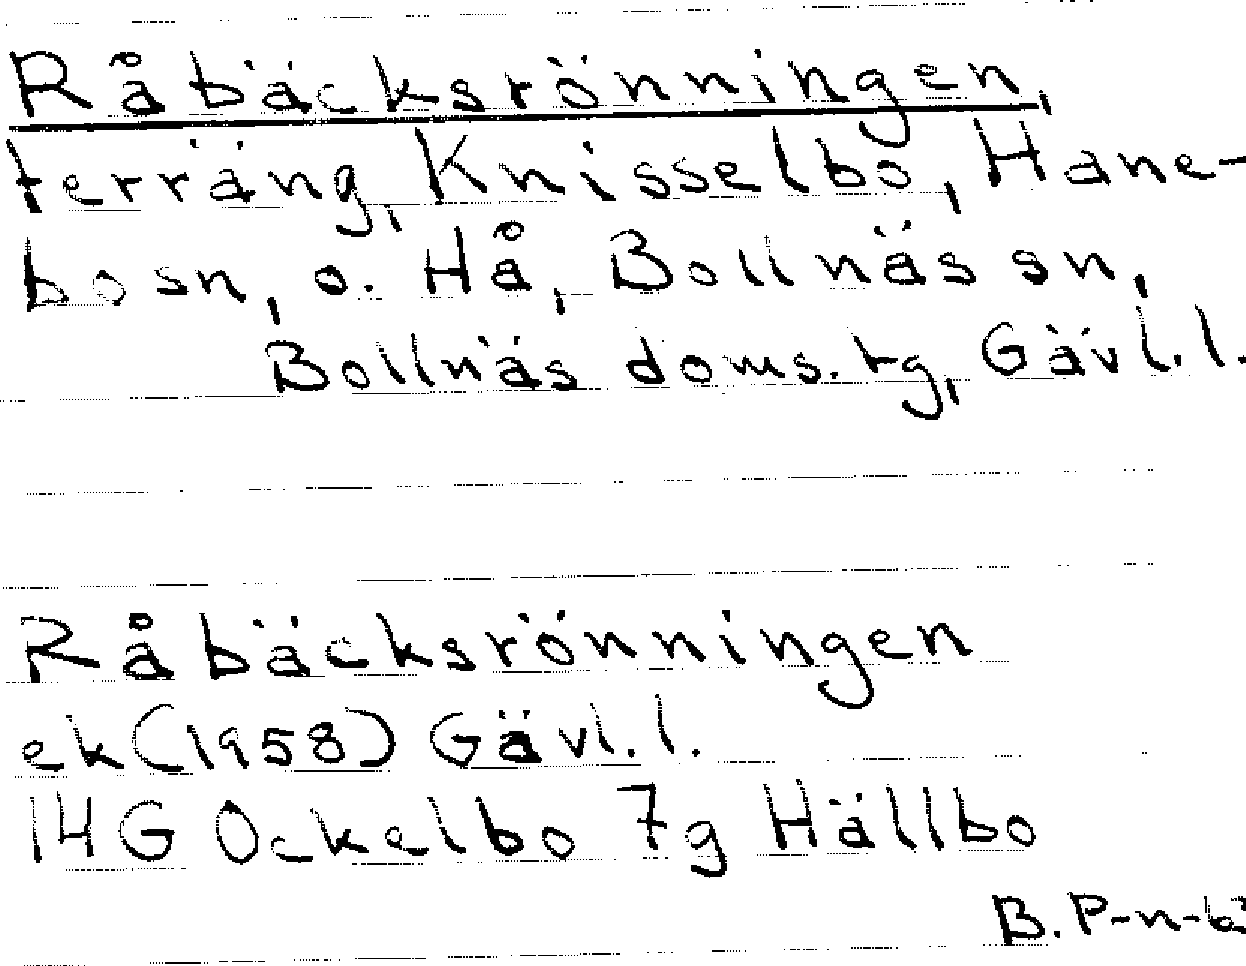 Råbäcksrönningen,
terräng, Knisselbo, Hane-
bo sn, o. Hå, Bollnäs sn,
Bollnäs doms. tg, Gävl. l.
Råbäcksrönningen
ek (1958) Gävl. l.
14G Ockelbo 7g Hällbo
B. P-n-